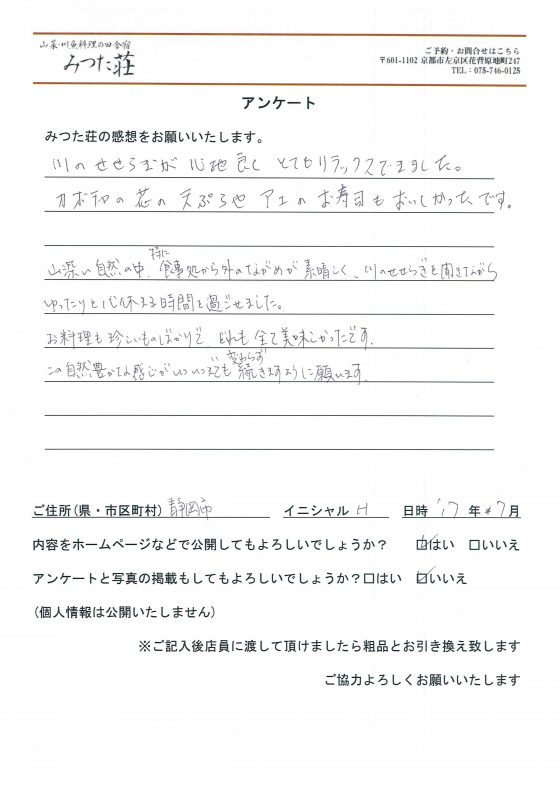 山菜・川魚料理の田舎宿
みつた荘
ご予約・お問合せはこちら
〒601-1102 京都市左京区花背原地町247
TEL：075-746-0125
アンケート
みつた荘の感想をお願いいたします。
川のせせらぎが心地良く とてもリラックスできました。
カボチャの花の天ぷらや アユのお寿司もおいしかったです。
山深い自然の中、特に食事処から外のながめが素晴しく、川のせせらぎを聞きながら
ゆったりと心休まる時間を過ごせました。
お料理も珍しいものばかりで どれも全て美味しかったです。
この自然豊かな感じがいついつまでも変わらず続きますように願います。
ご住所(県・市区町村) 静岡市 イニシャル H 日時 '17 年 7月
内容をホームページなどで公開してもよろしいでしょうか？ ☑はい □いいえ
アンケートと写真の掲載もしてもよろしいでしょうか？□はい ☑いいえ
(個人情報は公開いたしません)
※ご記入後店員に渡して頂けましたら粗品とお引き換え致します
ご協力よろしくお願いいたします